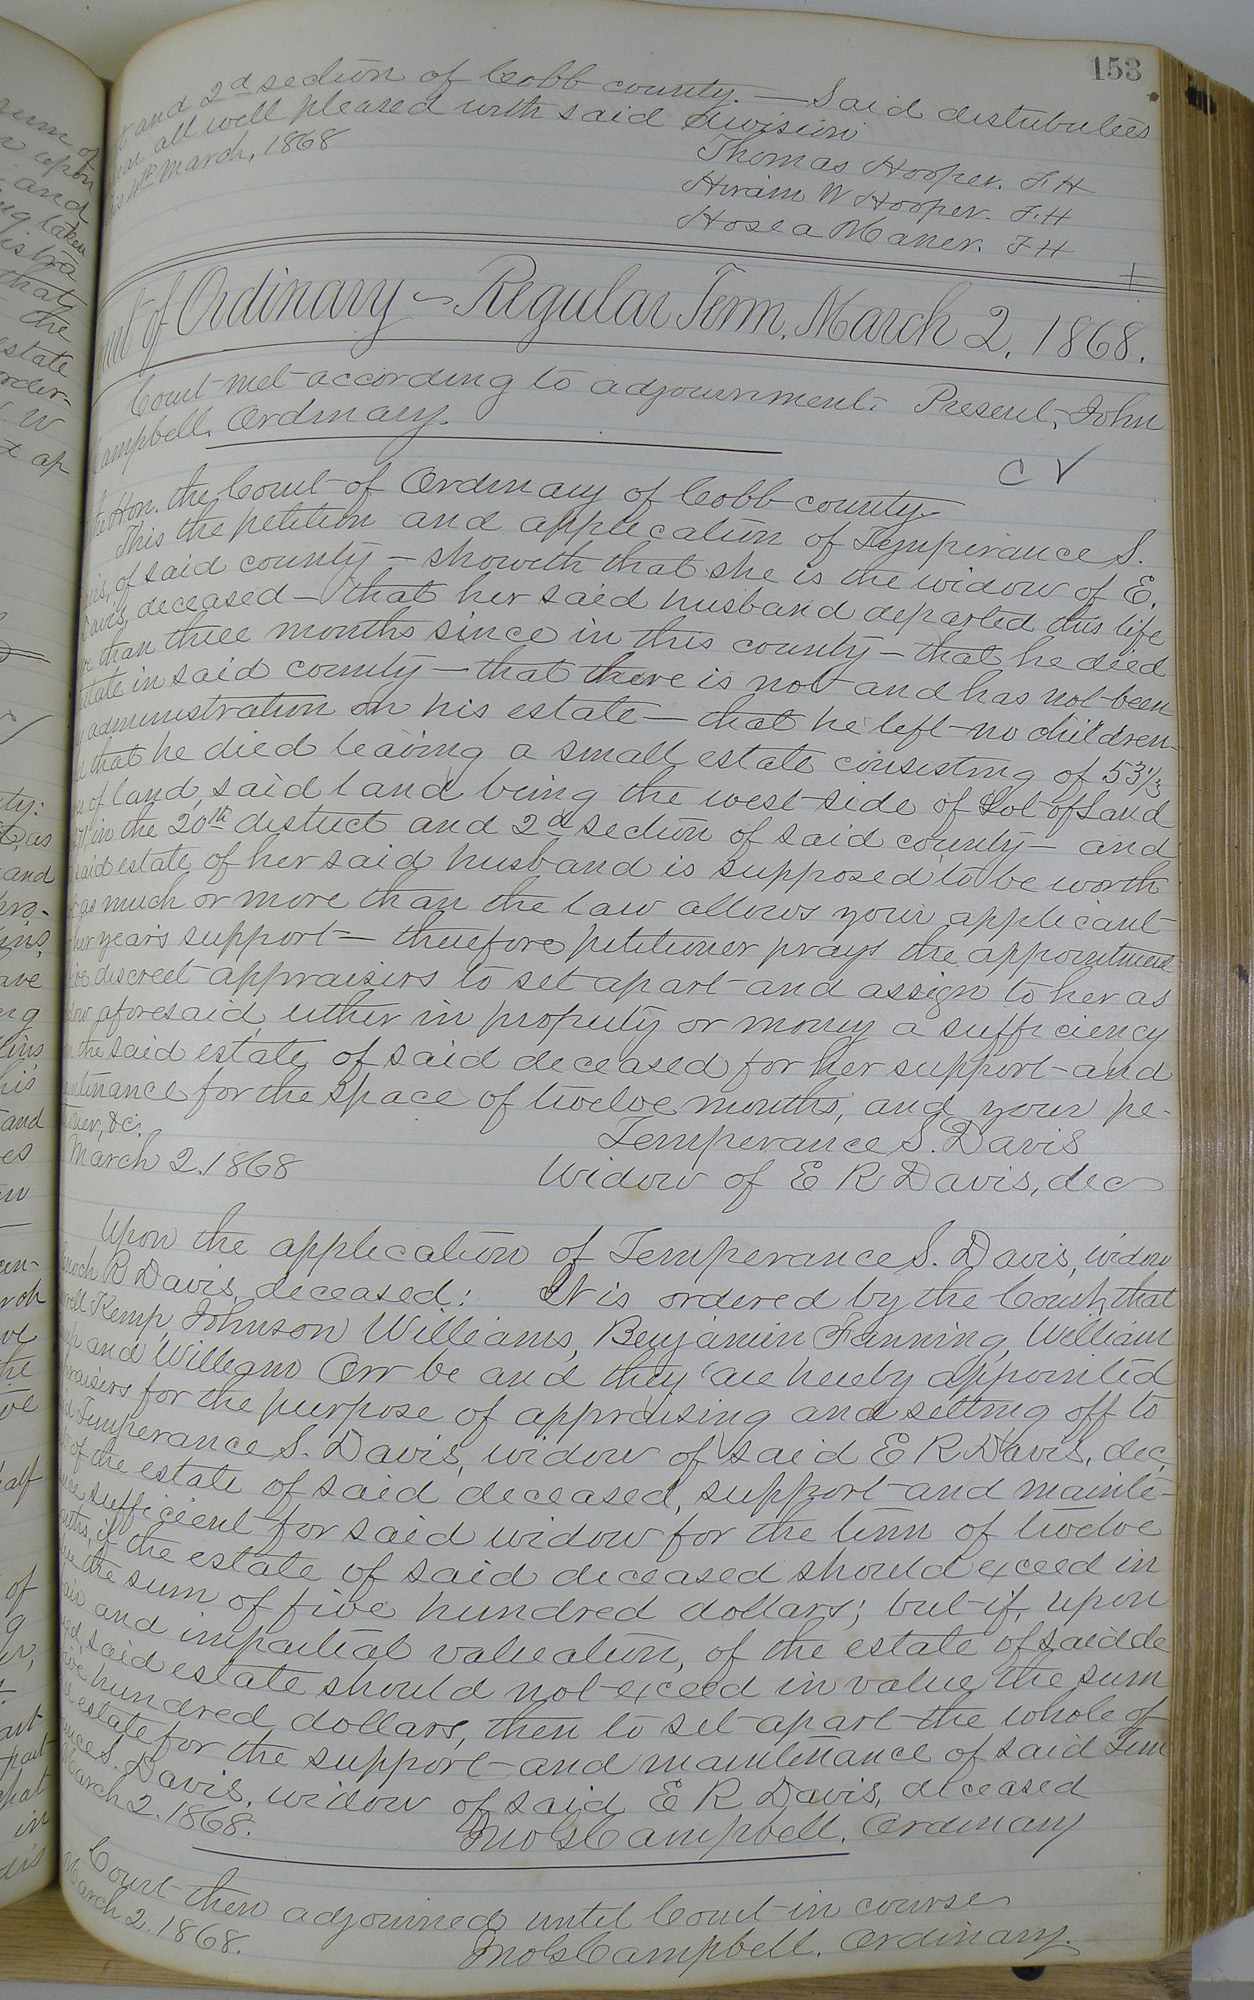 153
and 2d section of Cobb county. — Said distributees
all well pleased with said division
March, 1868
Thomas Hooper. F.H
Hiram W Hooper. F.H
Hosea Maner. F H
of Ordinary — Regular Term, March 2, 1868.
Court met according to adjournment. Present, John
Campbell, Ordinary.
C √
Hon. the Court of Ordinary of Cobb county.
This the petition and application of Temperance S.
of said county — showeth that she is the widow of E.
Davis, deceased — that her said husband departed this life
than three months since in this county — that he died
in said county — that there is not and has not been
administration on his estate — that he left no children
that he died leaving a small estate consisting of 53 1/3
of land, said land being the west side of Lot of Land
in the 20th district and 2d section of said county — and
said estate of her said husband is supposed to be worth
as much or more than the law allows your applicant
her years support — therefore petitioner prays the appointment
discreet appraisers to set apart and assign to her as
aforesaid, either in property or money a sufficiency
the said estate of said deceased for her support and
for the space of twelve months, and your pe-
&c.
March 2. 1868
Temperance S. Davis
Widow of E R Davis, dec
Upon the application of Temperance S. Davis, widow
R Davis, deceased: It is ordered by the Court, that
Kemp, Johnson Williams, Benjamin Fanning, William
and William Orr be and they are hereby appointed
for the purpose of appraising and setting off to
Temperance S. Davis, widow of said E R Davis, dec,
of the estate of said deceased, support and mainte-
sufficient for said widow for the term of twelve
if the estate of said deceased should exceed in
the sum of five hundred dollars; but if, upon
and impartial valuation, of the estate of said de
said estate should not exceed in value the sum
hundred dollars, then to set apart the whole of
estate for the support and maintenance of said Tem
S. Davis, widow of said E R Davis, deceased
March 2. 1868.
Jno G Campbell, Ordinary
Court then adjourned until Court in course
March 2. 1868.
Jno G Campbell, Ordinary.